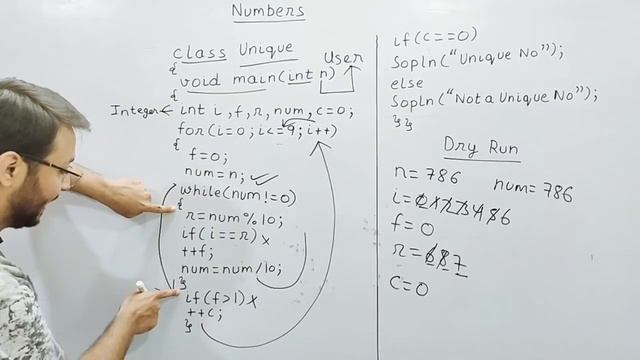 Numbers
class Unique
{
void main(int n)
User
{
Integer ← int i, f, r, num, c=0;
for(i=0; i<=9; i++)
{
f=0;
num=n;
while(num!=0)
{
r=num%10;
if(i==r)
++f;
num=num/10;
}
if(f>1)
++c;
}
if(c==0)
Sopln("Unique No");
else
Sopln("Not a Unique No");
}}
Dry Run
n=786 num=786
f=0
c=0